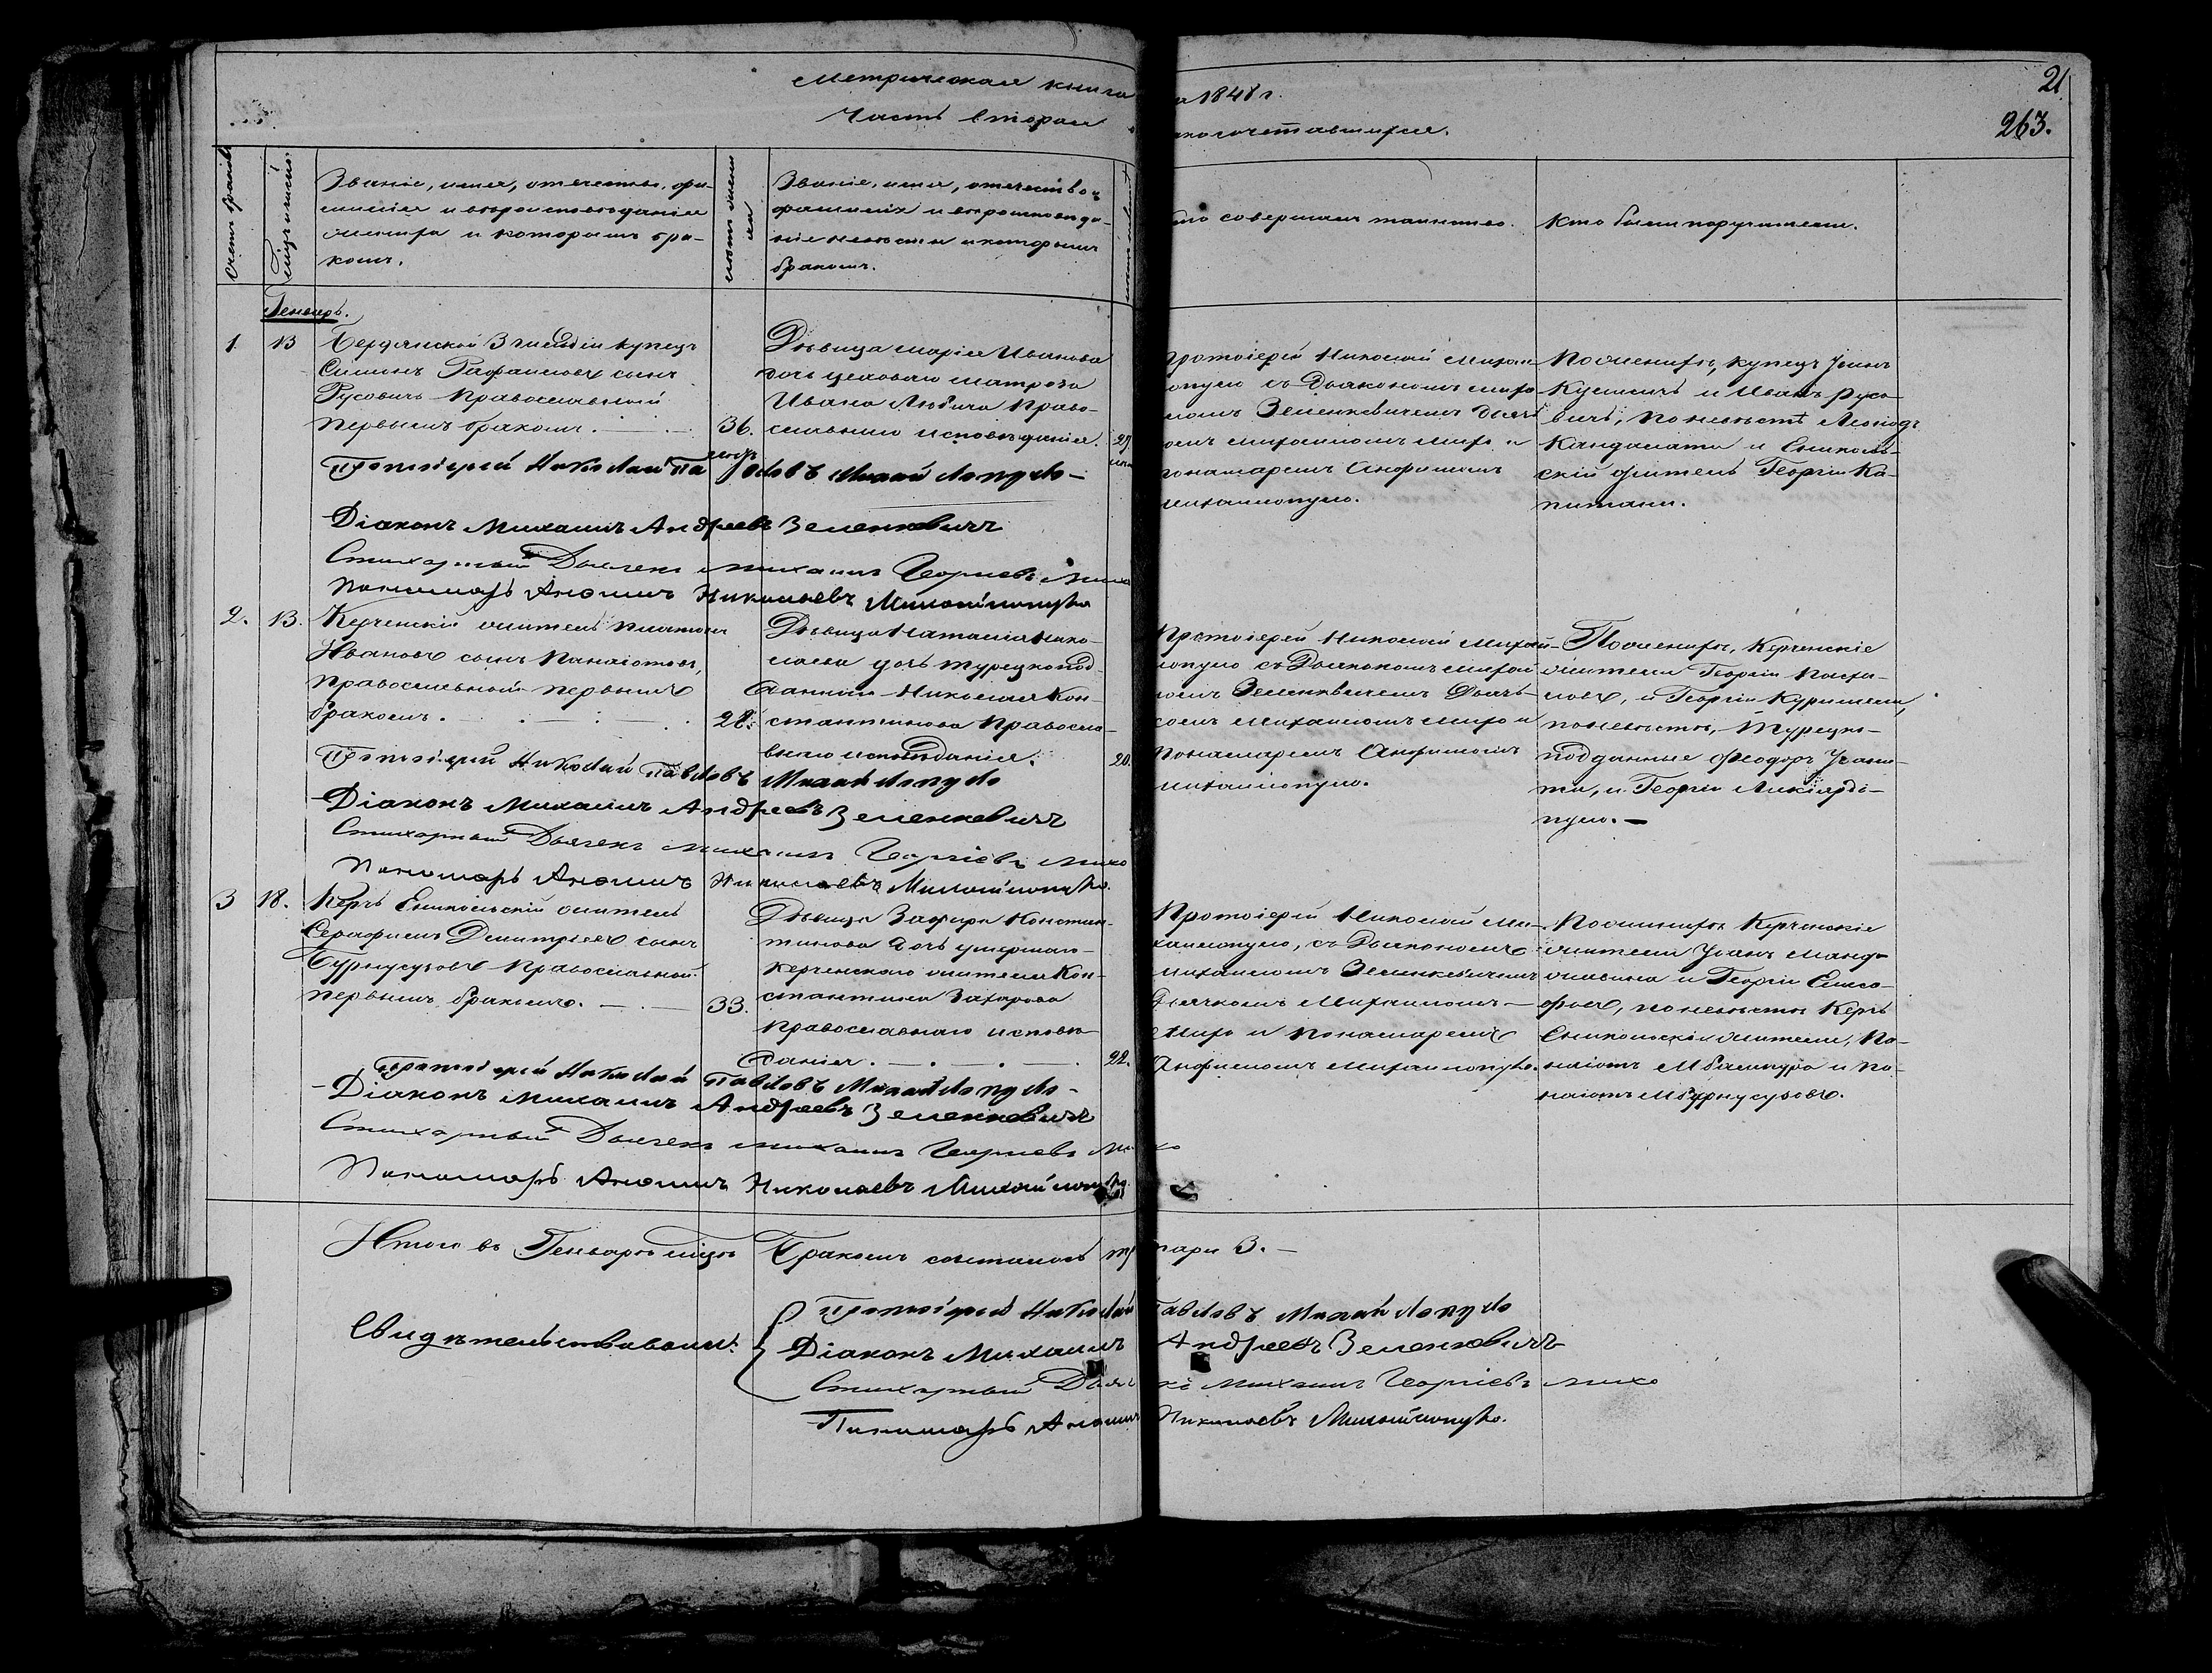 21
263.
Метрическая книга
на 1848 г.
Часть вторая
бракосочетавшихся.
Счетъ браковъ
Мѣсяцъ и число.
Званіе, имя, отечество, фа-
милія и вѣроисповѣданіе
жениха и которымъ бра-
комъ.
Званіе, имя, отечество,
фамилія и вѣроисповѣда-
ніе невѣсты и которымъ
бракомъ.
Кто совершалъ таинство.
Кто были поручители.
Генварь.
1.
13
Бердянской 3 гильдіи купецъ
Симонъ Рафаиловъ сынъ
Русовичъ Православный
первымъ бракомъ.
36.
Дѣвица Марія Иванова
дочь матроза
Ивана Любича Право-
славнаго исповѣданія.
Протоіерей Николай Михаи-
лопуло съ Дьякономъ Миха-
иломъ Зеленкевичемъ Дьяч-
комъ Михаиломъ Михо и
понамаремъ Анфимомъ
Михаилопуло.
По женихѣ, купецъ Іоанъ
и Иванъ Русо-
вичъ, по невѣстѣ Леонидъ
и Ениколь-
скій житель Георгій Ка-
питани.
Протоіерей Николай Павловъ Михайлопуло
Діаконъ Михаилъ Андреевъ Зеленкевичъ
Стихарный Дьячекъ Михаилъ Георгіевъ Михо
Пономарь Анфимъ Николаевъ Михайлопуло
2.
13.
Керченскій житель Платонъ
Ивановъ сынъ Панаіотовъ,
православный первымъ
бракомъ.
28.
Дѣвица Наталія Нико-
лаева дочь турецкопод-
даннаго Николая Кон-
стантинова Правосла-
внаго исповѣданія.
20.
Протоіерей Николай Михаи-
лопуло съ Дьякономъ Михаи-
ломъ Зеленкевичемъ Дьяч-
комъ Михаиломъ Михо и
Понамаремъ Анфимомъ
Михаилопуло.
По женихѣ, Керченскіе
жители Георгій
и Георгій
по невѣстѣ, Турецко-
подданные Феодоръ
и Георгій
пуло.
Протоіерей Николай Павловъ Михайлопуло
Діаконъ Михаилъ Андреевъ Зеленкевичъ
Стихарный Дьячекъ Михаилъ Георгіевъ Михо
Пономарь Анфимъ Николаевъ Михайлопуло
3
18.
Керчь Еникольскій житель
Серафимъ Димитріевъ сынъ
Бурнусузовъ Православный
первымъ бракомъ.
33.
Дѣвица Зафира Констан-
тинова дочь умершаго
Керченскаго жителя Кон-
стантина Захарова
православнаго исповѣ-
данія.
22.
Протоіерей Николай Ми-
хаилопуло, съ Дьякономъ
Михаиломъ Зеленкевичемъ
Дьячкомъ Михаиломъ
Михо и Понамаремъ
Анфимомъ Михаилопуло.
По женихѣ Керченскіе
жители Іоанъ
и Георгій
по невѣстѣ Керчь
Еникольскіе жители, Па-
наіотъ и Па-
наіотъ Бурнусузовъ.
Протоіерей Николай Павловъ Михайлопуло
Діаконъ Михаилъ Андреевъ Зеленкевичъ
Стихарный Дьячекъ Михаилъ Георгіевъ Михо
Пономарь Анфимъ Николаевъ Михайлопуло
Итого въ Генварѣ мѣсяцѣ Бракомъ сочталось пари 3.
Свидѣтельствовали:
Протоіерей Николай Павловъ Михайлопуло
Діаконъ Михаилъ Андреевъ Зеленкевичъ
Стихарный Дьячекъ Михаилъ Георгіевъ Михо
Пономарь Анфимъ Николаевъ Михайлопуло.